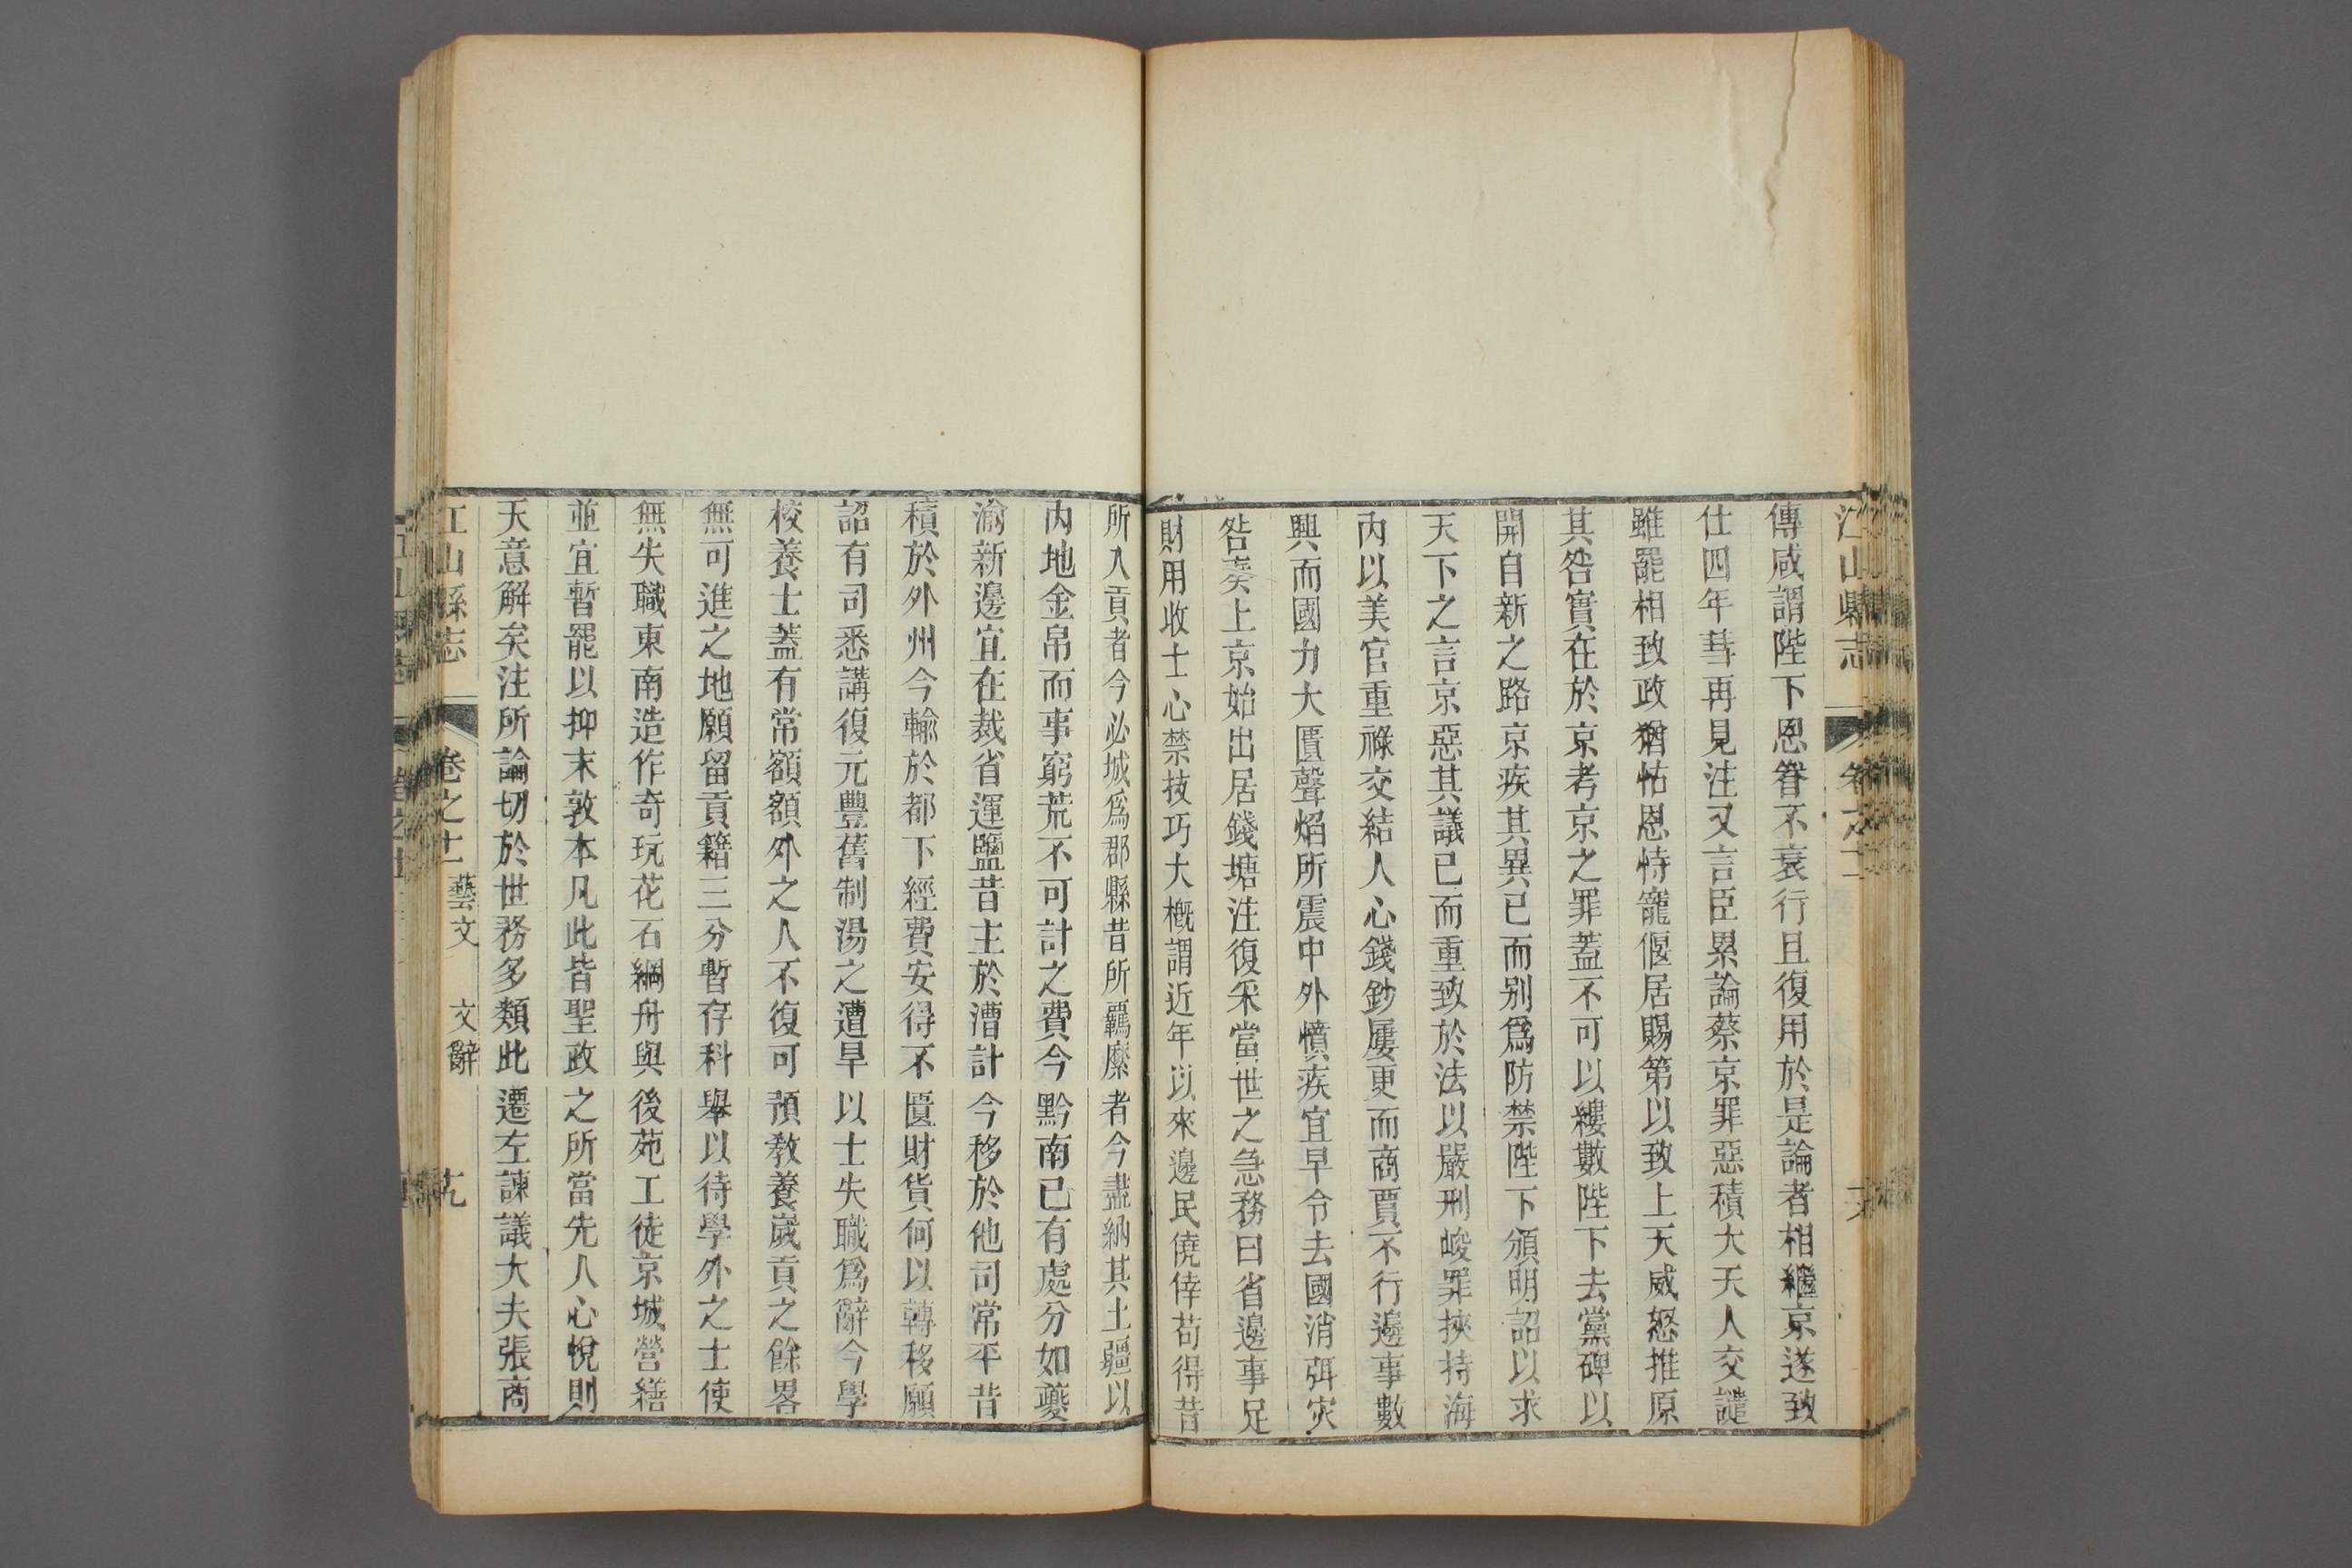 江山縣志 卷之十一
傳咸謂陛下恩眷不衰行且復用於是論者相繼京遂致
仕四年彗再見注又言臣累論蔡京罪惡積大天人交譴
雖罷相致政猶怙恩恃寵偃居賜第以致上天威怒推原
其咎實在於京考京之罪蓋不可以縷數陛下去黨碑以
開自新之路京疾其異已而别爲防禁陛下頒明詔以求
天下之言京惡其議已而重致於法以嚴刑峻罪挾持海
内以美官重祿交結人心錢鈔屢更而商賈不行邊事數
興而國力大匱聲焰所震中外憤疾宜早令去國消弭灾
咎奏上京始出居錢塘注復采當世之急務曰省邊事足
財用收士心禁技巧大槪謂近年以來邊民僥倖苟得昔
所入貢者今必城爲郡縣昔所羈縻者今盡納其土疆以
内地金帛而事窮荒不可計之費今黔南已有處分如夔
渝新邊宜在裁省運鹽昔主於漕計今移於他司常平昔
積於外州今輸於都下經費安得不匱財貨何以轉移願
詔有司悉講復元豐舊制湯之遭旱以士失職爲辭今學
校養士蓋有常額額外之人不復可預教養歲貢之餘畧
無可進之地願留貢籍三分暫存科舉以待學外之士使
無失職東南造作奇玩花石綱舟與後苑工徒京城營繕
並宜暫罷以抑末敦本凡此皆聖政之所當先人心悅則
天意解矣注所論切於世務多類此遷左諫議大夫張商
江山縣志 卷之十一 藝文 文辭 十九